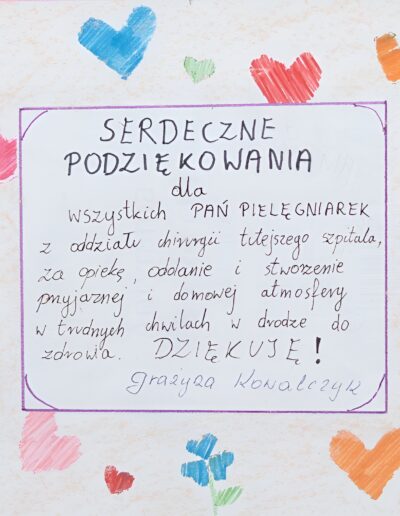 SERDECZNE
PODZIĘKOWANIA
dla
WSZYSTKICH PAŃ PIELĘGNIAREK
z oddziału chirurgii tutejszego szpitala,
za opiekę, oddanie i stworzenie
przyjaznej i domowej atmosfery
w trudnych chwilach w drodze do
zdrowia. DZIĘKUJĘ!
Grażyna Kowalczyk